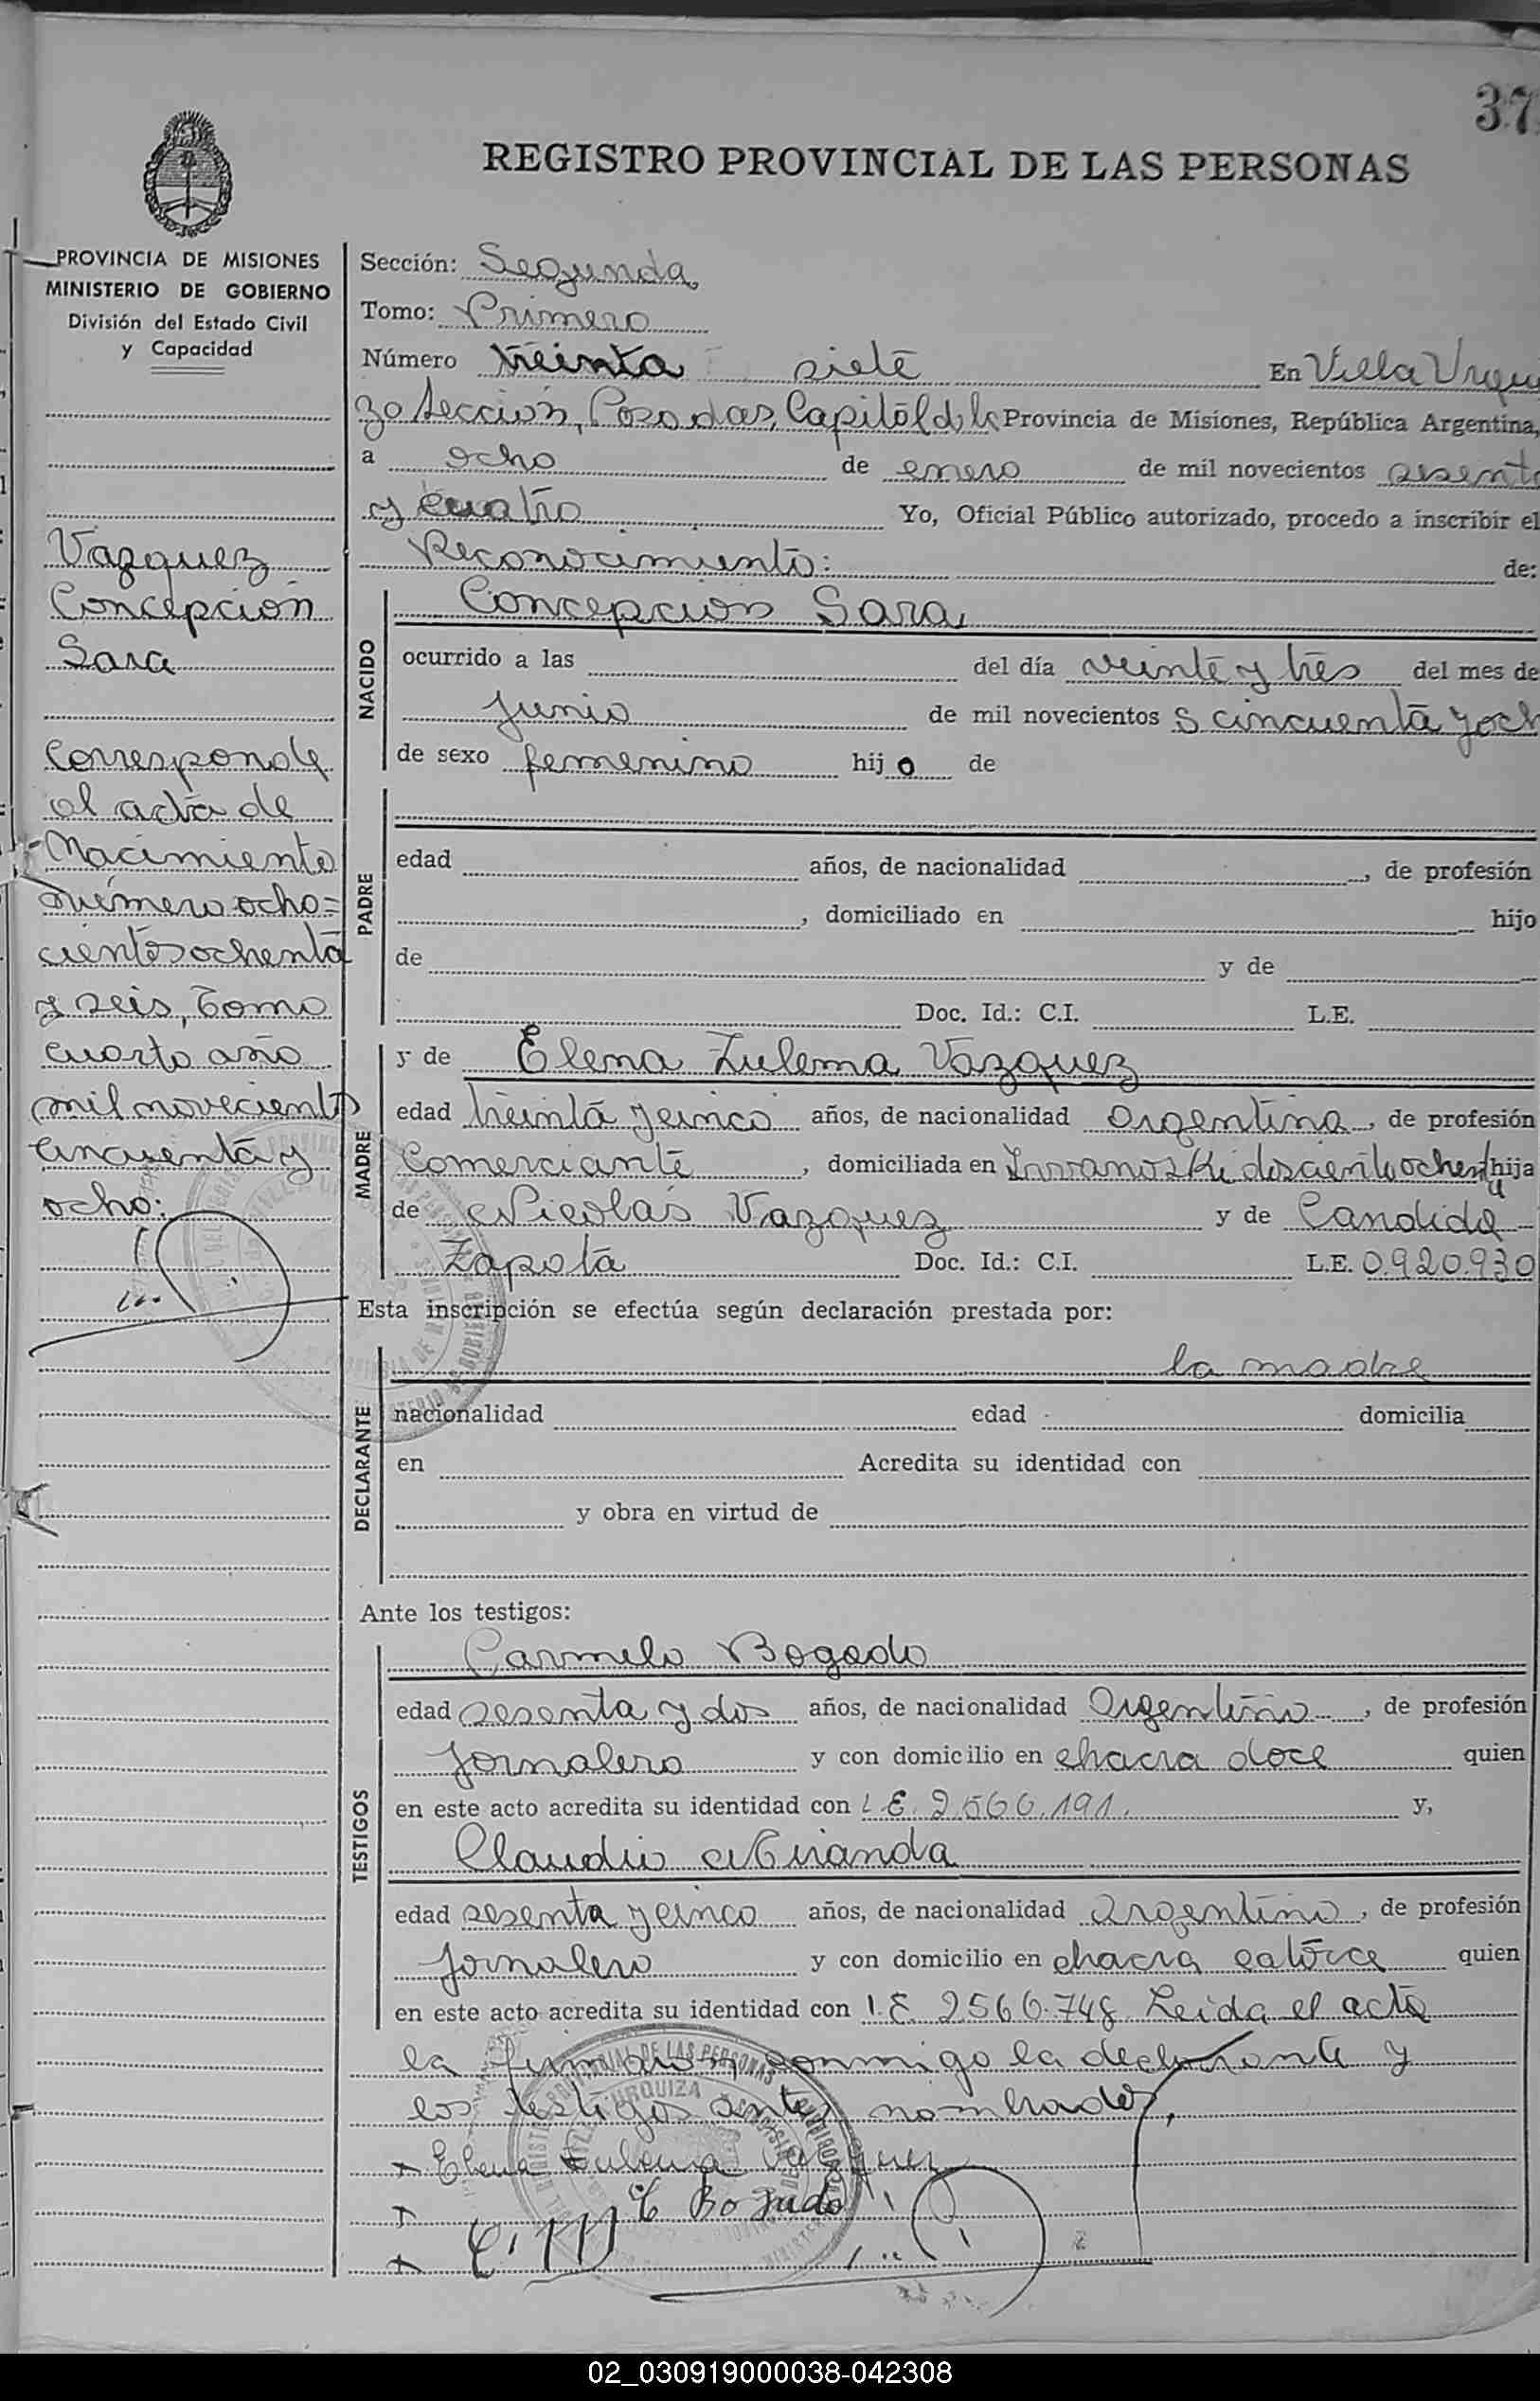 37
REGISTRO PROVINCIAL DE LAS PERSONAS
PROVINCIA DE MISIONES
MINISTERIO DE GOBIERNO
División del Estado Civil
y Capacidad
Vazquez
Concepción
Sara
Corresponde
al acta de
Nacimiento
número ocho=
cientos ochenta
y seis, Tomo
cuarto año
mil novecientos
cincuenta y
ocho:
Sección: Segunda
Tomo: Primero
Número treinta siete En Villa Urqui
za Sección, Posadas, Capital de la Provincia de Misiones, República Argentina,
a ocho de enero de mil novecientos sesenta
y cuatro Yo, Oficial Público autorizado, procedo a inscribir el
Reconocimiento: de:
NACIDO
Concepción Sara
ocurrido a las del día veinte y tres del mes de
junio de mil novecientos s cincuenta y och
de sexo femenino hijo de
PADRE
edad años, de nacionalidad , de profesión
, domiciliado en hijo
de y de
Doc. Id.: C.I. L.E.
MADRE
y de Elena Zulema Vazquez
edad treinta y cinco años, de nacionalidad Argentina, de profesión
Comerciante, domiciliada en doscientos ochenta hija
de Nicolás Vazquez y de Candida
Zapata Doc. Id.: C.I. L.E. 0.920.930
Esta inscripción se efectúa según declaración prestada por:
DECLARANTE
la madre
nacionalidad edad domicilia
en Acredita su identidad con
y obra en virtud de
Ante los testigos:
TESTIGOS
Carmelo Bogado
edad sesenta y dos años, de nacionalidad Argentino, de profesión
Jornalero y con domicilio en chacra doce quien
en este acto acredita su identidad con L.E. 2.566.191. y,
Claudio Miranda
edad sesenta y cinco años, de nacionalidad argentino, de profesión
Jornalero y con domicilio en chacra catorce quien
en este acto acredita su identidad con L.E. 2566.748. Leida el acta
la firmaron conmigo la declarante y
los testigos antes nombrados,
Elena Zulema Vazquez
C Bogado
C. M
02_030919000038-042308